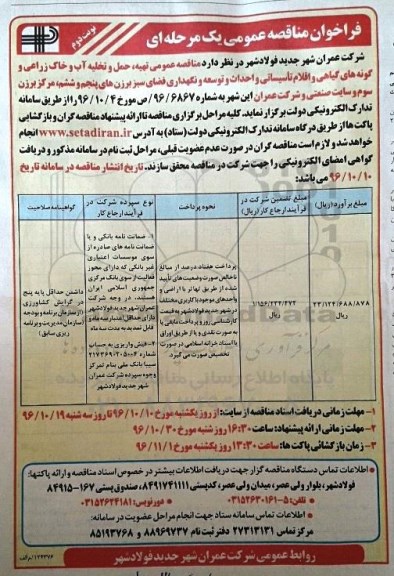 فراخوان مناقصه عمومی یک مرحله ای
نوبت دوم
شرکت عمران شهر جدید فولادشهر در نظر دارد مناقصه عمومی تهیه، حمل و تخلیه آب و خاک زراعی و
گونه های گیاهی و اقلام تأسیساتی و احداث و توسعه و نگهداری فضای سبز برزن های پنجم و ششم، مرکز برزن
سوم و سایت صنعتی و شرکت عمران این شهر به شماره ۹۶/۶۸۶۷/ص مورخ ۹۶/۱۰/۴ را از طریق سامانه
تدارک الکترونیکی دولت برگزار نماید. کلیه مراحل برگزاری مناقصه تا ارائه پیشنهاد مناقصه گران و بازگشایی
پاکت ها از طریق درگاه سامانه تدارک الکترونیکی دولت (ستاد) به آدرس www.setadiran.ir انجام
خواهد شد و لازم است مناقصه گران در صورت عدم عضویت قبلی، مراحل ثبت نام در سامانه مذکور و دریافت
گواهی امضای الکترونیکی را جهت شرکت در مناقصه محقق سازند. تاریخ انتشار مناقصه در سامانه تاریخ
۹۶/۱۰/۱۰ می باشد:
مبلغ برآورد (ریال)
مبلغ تضمین شرکت در فرآیند ارجاع کار (ریال)
نحوه پرداخت
نوع سپرده شرکت در فرآیند ارجاع کار
گواهینامه صلاحیت
۲۳/۱۲۴/۶۸۸/۸۷۸
ریال
۱/۱۵۶/۲۳۴/۴۷۲
ریال
پرداخت هفتاد درصد از مبالغ
ناخالص صورت وضعیت های تأیید
شده از طریق تهاتر با اراضی و
واحدهای موجود با کاربری مختلف
شرکت عمران فولادشهر به قیمت
کارشناسی روز و پرداخت مابقی یا
به صورت نقدی و یا از طریق اوراق
یا اسناد خزانه اسلامی در صورت
تخصیص صورت می گیرد.
۱- ضمانت نامه بانکی و یا
ضمانت نامه های صادره از
سوی موسسات اعتباری
غیر بانکی که دارای مجوز
فعالیت از سوی بانک مرکزی
جمهوری اسلامی ایران
هستند، در وجه شرکت
عمران شهر جدید فولادشهر
دارای حداقل اعتبار سه ماه و
قابل تمدید به مدت سه ماه
۲- فیش واریزی به حساب
سیبا بانک ملی بنام تمرکز
وجوه سپرده شرکت عمران
شهر جدید فولادشهر
داشتن حداقل پایه پنج
در گرایش کشاورزی
(از سازمان برنامه و بودجه
(سازمان مدیریت و برنامه
ریزی سابق)
۱- مهلت زمانی دریافت اسناد مناقصه از سایت: از روز یکشنبه مورخ ۹۶/۱۰/۱۰ تا روز سه شنبه ۹۶/۱۰/۱۹
۲- مهلت زمانی ارائه پیشنهاد: ساعت ۱۶:۳۰ روز شنبه مورخ ۹۶/۱۰/۳۰
۳- زمان بازگشائی پاکت ها: ساعت ۱۳:۳۰ روز یکشنبه مورخ ۹۶/۱۱/۱
• اطلاعات تماس دستگاه مناقصه گزار جهت دریافت اطلاعات بیشتر در خصوص اسناد مناقصه و ارائه پاکتها:
فولادشهر، بلوار ولی عصر، میدان ولی عصر، کدپستی ۸۴۹۱۷۴۱۱۱۱، صندوق پستی ۱۶۷-۸۴۹۱۵
تلفن: ۵-۰۳۱۵۲۶۳۰۱۶۱ دورنویس: ۰۳۱۵۲۶۲۴۱۸۱
• اطلاعات تماس سامانه ستاد جهت انجام مراحل عضویت در سامانه:
مرکز تماس ۲۷۳۱۳۱۳۱ دفتر ثبت نام ۸۸۹۶۹۷۳۷ و ۸۵۱۹۳۷۶۸
روابط عمومی شرکت عمران شهر جدید فولادشهر